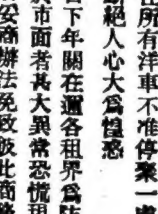 所有洋車不准停業一
絕人心大爲惶惑
下年關在邇各租界爲
市面若其大異常恐慌
妥商辦法免致彼此商